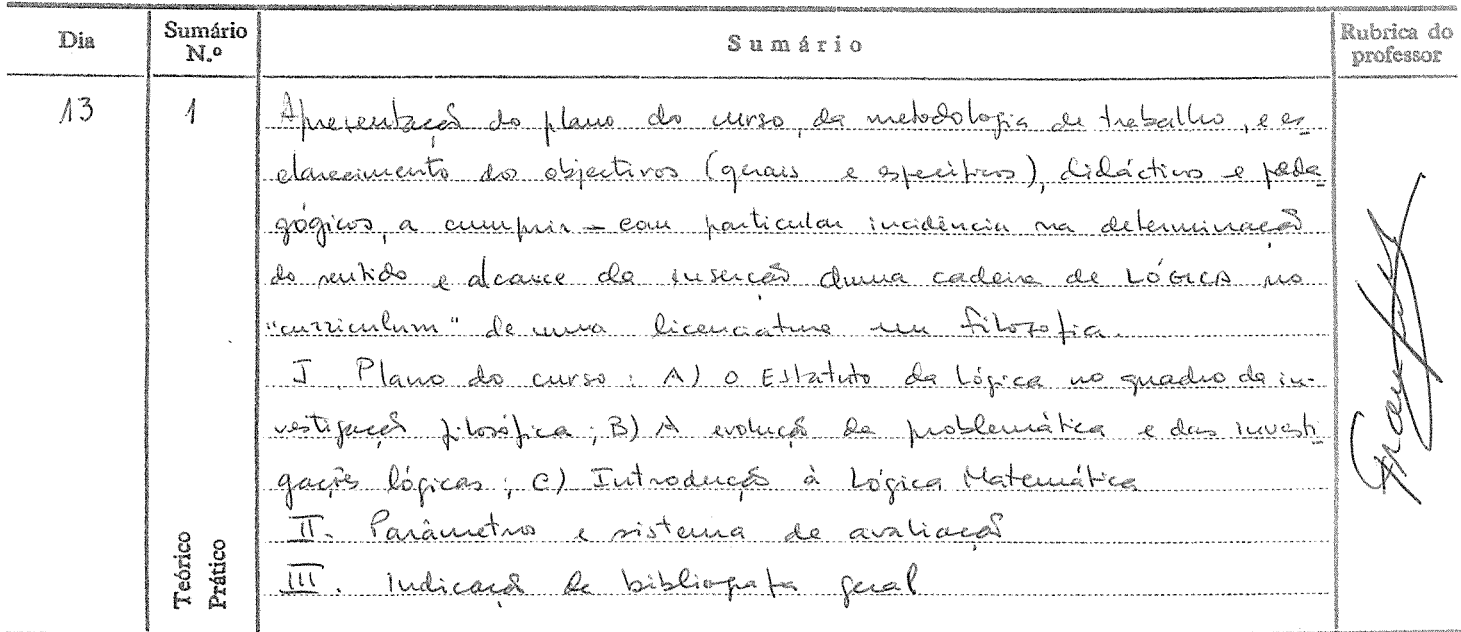 Dia
Sumário N.º
Sumário
Rubrica do professor
13
1
Apresentação do plano do curso, da metodologia de trabalho, e es_
clarecimento dos objectivos (gerais e específicos), didácticos e peda_
gógicos, a cumprir – com particular incidência na determinação
do sentido e alcance da inserção duma cadeira de LÓGICA no
"curriculum" de uma licenciatura em filosofia.
I. Plano do curso: A) O Estatuto da Lógica no quadro da in-
vestigação filosófica; B) A evolução da problemática e das investi_
gações lógicas; C) Introdução à Lógica Matemática
II. Parâmetros e sistema de avaliação
III. Indicação de bibliografia geral
Teórico
Prático